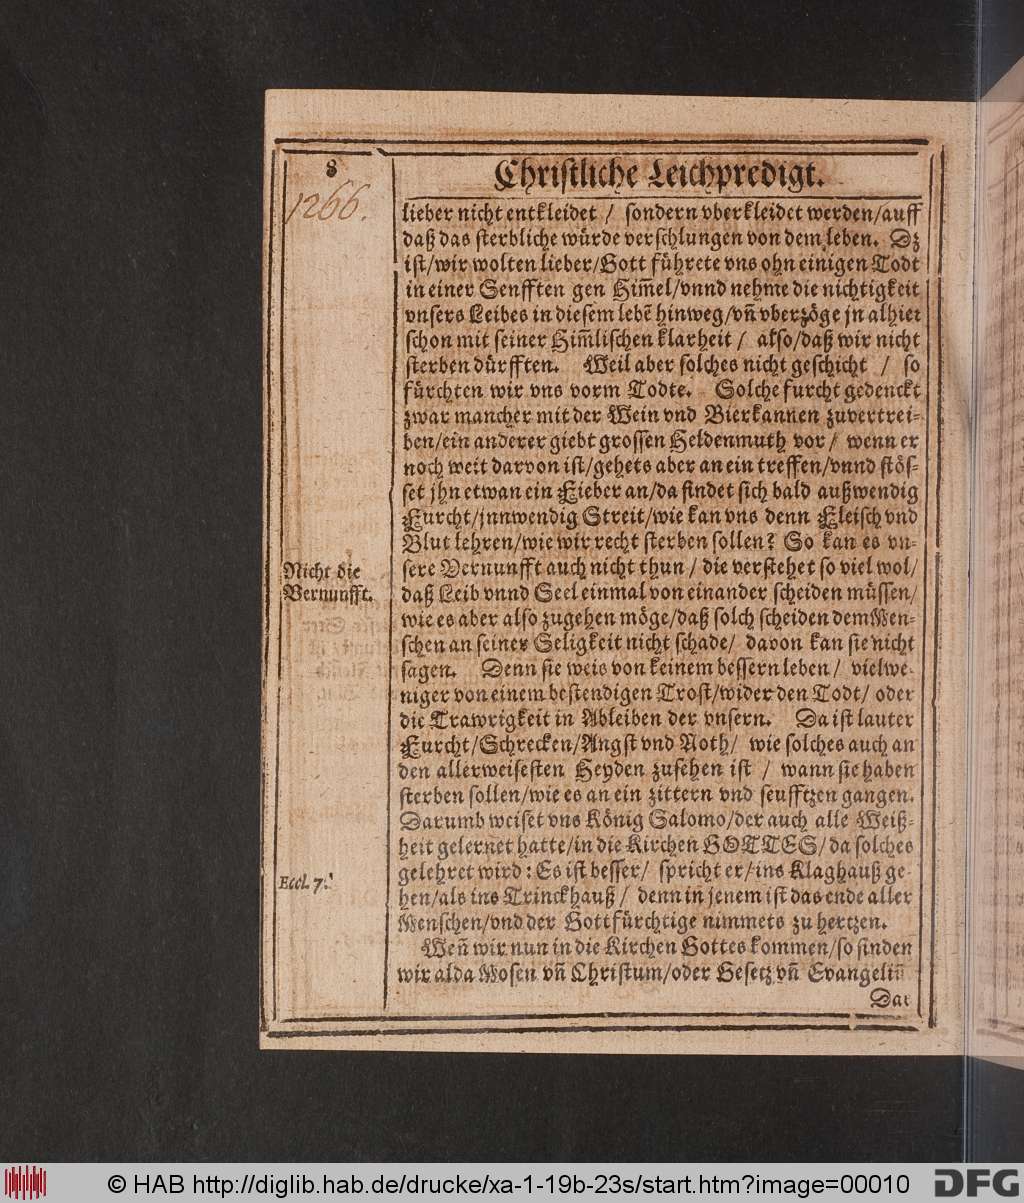 8
Christliche Leichpredigt.
1266.
lieber nicht entkleidet / sondern vberkleidet werden/auff
daß das sterbliche würde verschlungen von dem leben. Dz
ist/wir wolten lieber/Gott führete vns ohn einigen Todt
in einer Senfften gen Him̃el/vnnd nehme die nichtigkeit
vnsers Leibes in diesem lebẽ hinweg/vñ vberzöge jn alhier
schon mit seiner Him̃lischen klarheit / also/daß wir nicht
sterben dürfften. Weil aber solches nicht geschicht / so
fürchten wir vns vorm Todte. Solche furcht gedenckt
zwar mancher mit der Wein vnd Bierkannen zuvertrei-
ben/ein anderer giebt grossen Heldenmuth vor/ wenn er
noch weit darvon ist/gehets aber an ein treffen/vnnd stös-
set jhn etwan ein Fieber an/da findet sich bald außwendig
Furcht/jnnwendig Streit/wie kan vns denn Fleisch vnd
Blut lehren/wie wir recht sterben sollen? So kan es vn-
Nicht die
Vernunfft.
sere Vernunfft auch nicht thun / die verstehet so viel wol/
daß Leib vnnd Seel einmal von einander scheiden müssen/
wie es aber also zugehen möge/daß solch scheiden dem Men-
schen an seiner Seligkeit nicht schade/ davon kan sie nicht
sagen. Denn sie weis von keinem bessern leben / vielwe-
niger von einem bestendigen Trost/wider den Todt/ oder
die Trawrigkeit in Ableiben der vnsern. Da ist lauter
Furcht/Schrecken/Angst vnd Noth/ wie solches auch an
den allerweisesten Heyden zusehen ist / wann sie haben
sterben sollen/wie es an ein zittern vnd seufftzen gangen.
Darumb weiset vns König Salomo/der auch alle Weiß-
heit gelernet hatte/in die Kirchen GOTTES/da solches
gelehret wird: Es ist besser/ spricht er/ins Klaghauß ge-
Eccl. 7.
hen/als ins Trinckhauß/ denn in jenem ist das ende aller
Menschen/vnd der Gottfürchtige nimmets zu hertzen.
Weñ wir nun in die Kirchen Gottes kommen/so finden
wir alda Mosen vñ Christum/oder Gesetz vñ Evangeliũ
Dar
© HAB http://diglib.hab.de/drucke/xa-1-19b-23s/start.htm?image=00010
DFG